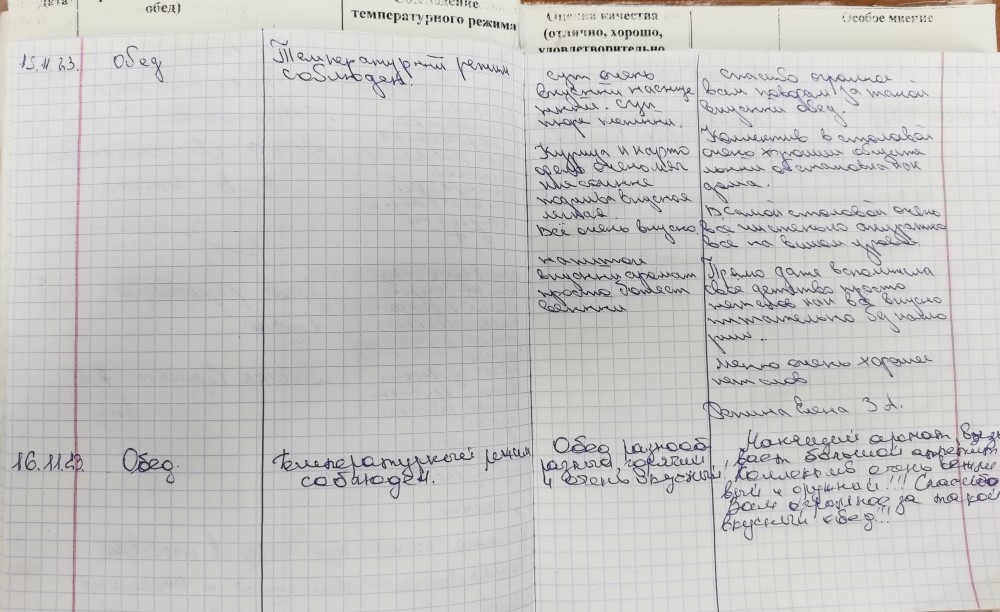 Дата
обед)
температурного режима
Оценка качества
(отлично, хорошо,
удовлетворительно,
Особое мнение
15.11.23.
обед
Температурный режим
соблюден.
суп очень
вкусный насыще
нный. суп
пюре
Курица и карто
фель очень мяг
кие
подлива вкусная
лёгкая.
Всё очень вкусно
напиток
вкусный аромат
просто божест
венный
спасибо огромное
вам поварам за такой
вкусный обед.
Коллектив в столовой
очень хороший
обстановка как
дома.
В самой столовой очень
всё чистенько аккуратно
всё на вышем уровне
Прямо даже вспомнила
своё детство просто
нет слов как всё вкусно
питательно
меню очень хорошее
нет слов
Елена З. А.
16.11.23.
Обед.
Температурный режим
соблюдён.
Обед разнооб
разный, горячий
и очень вкусный.
аромат, вызы
вает большой аппетит.
Коллектив очень вежли
вый и дружный!!! Спасибо
Вам огромное за такой
вкусный обед!!!